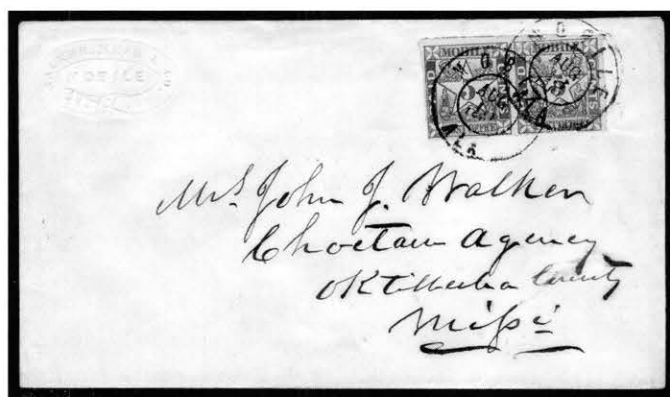 MOBILE
MOBILE
PAID
5
5
MOBILE ALA
AUG
MOBILE ALA
AUG
Mrs John J. Walker
Choctaw Agency
Oktibbeha County
Missi